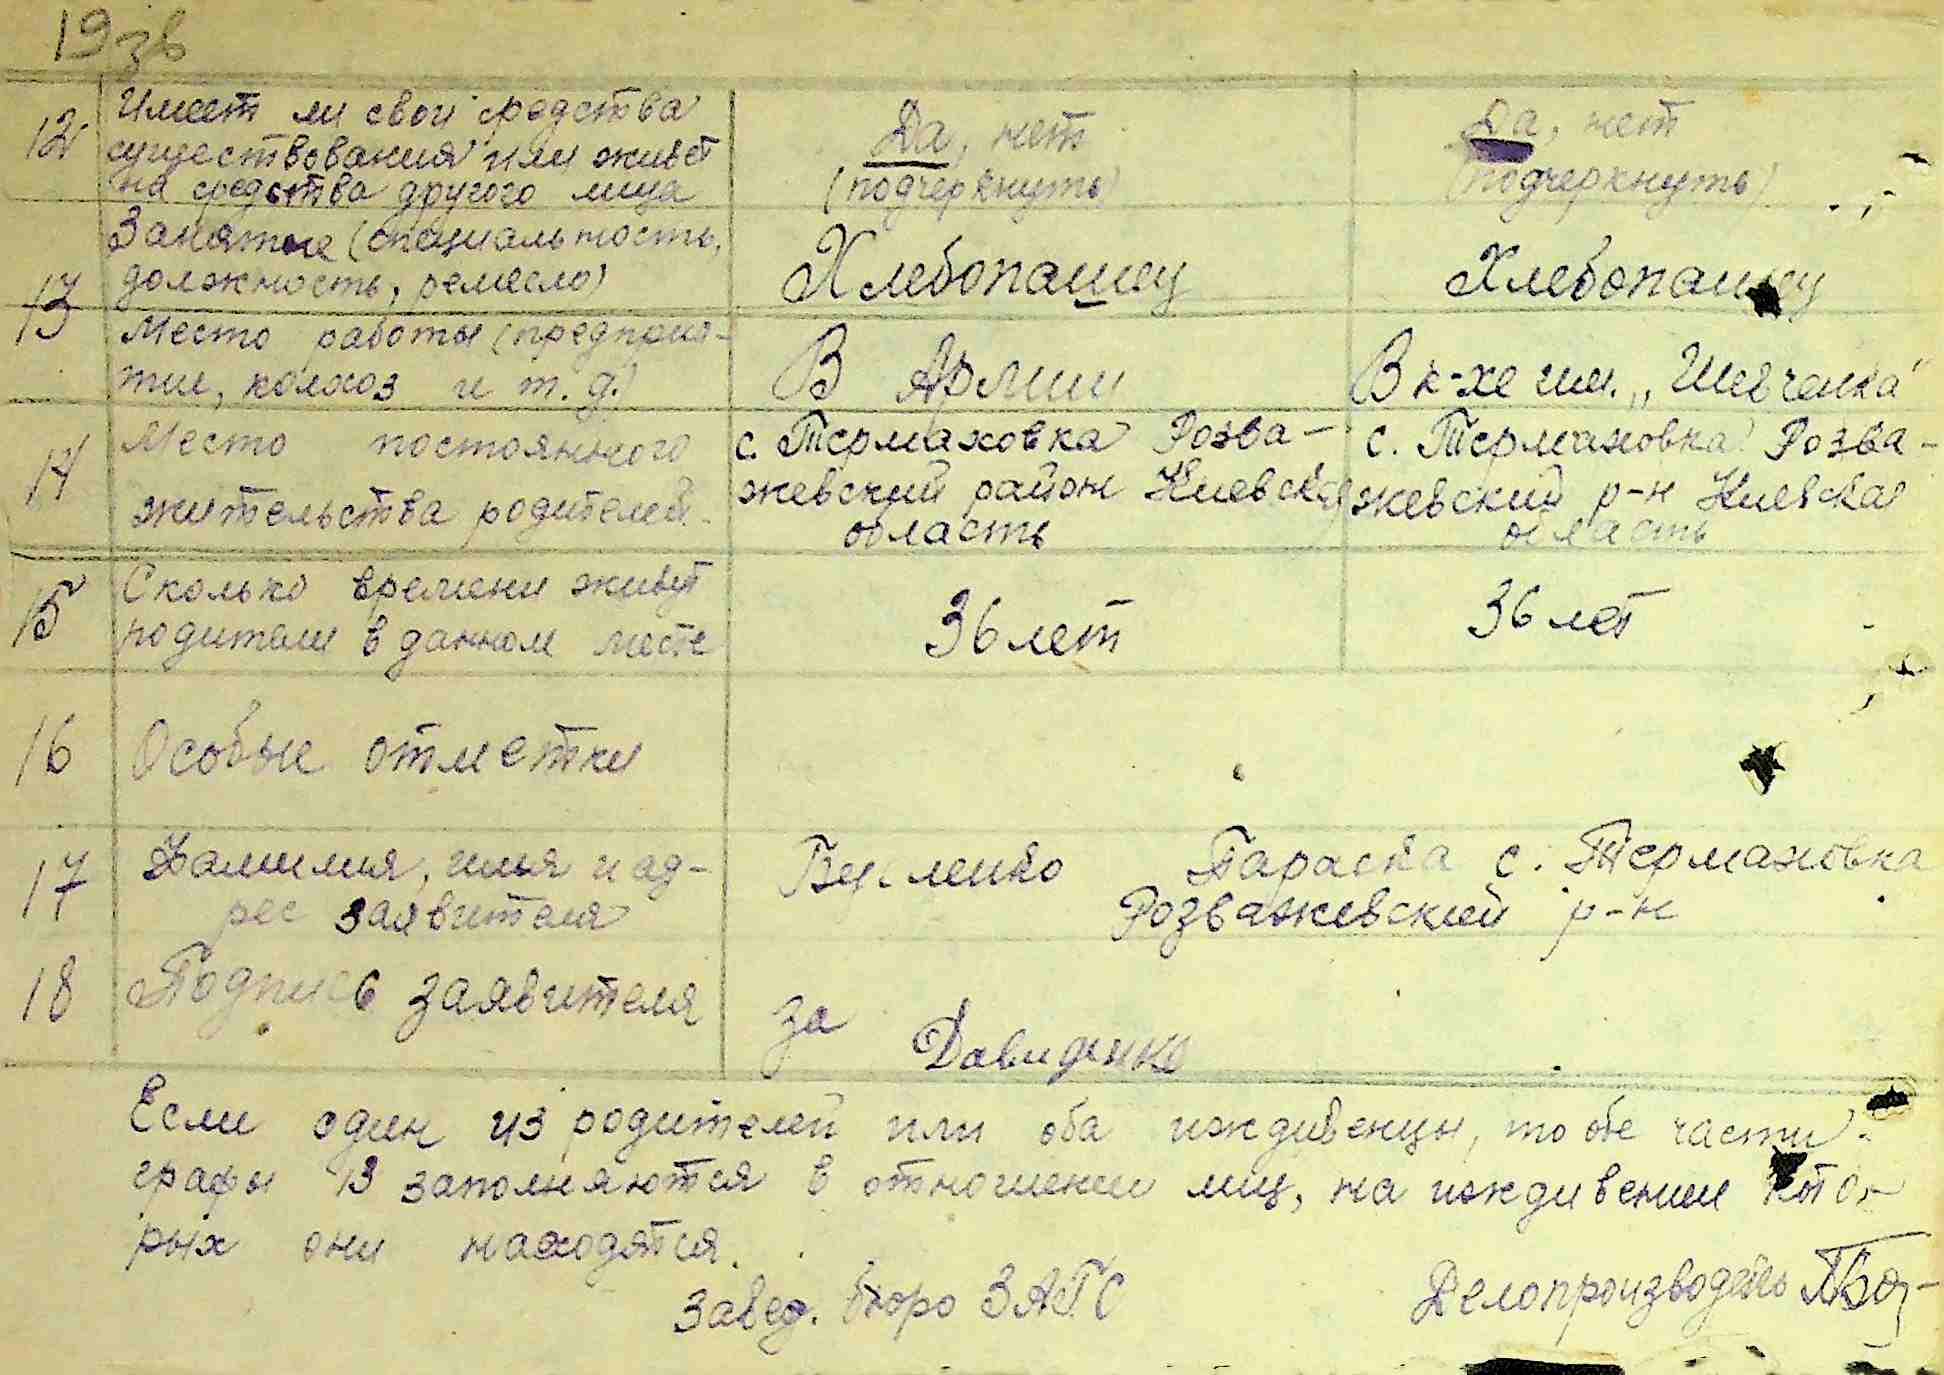 19зв
12 Имеет ли свои средства
существования или живет
на средства другого лица
Да, нет
(подчеркнуть)
Да, нет
(подчеркнуть)
13 Занятие (специальность,
должность, ремесло)
Хлебопашец
Хлебопашец
Место работы (предприя-
тие, колхоз и т. д.)
В Армии
В к-хе им. „Шевченка"
14 Место постоянного
жительства родителей
с. Термаховка Розва-
жевский район Киевская
область
с. Термаховка Розва-
жевский р-н Киевская
область
15 Сколько времени живут
родители в данном месте
36 лет
36 лет
16 Особые отметки
17 Фамилия, имя и ад-
рес заявителя
Параска с. Термаховка
Розважевский р-н
18 Подпись заявителя
за
Давиденко
Если один из родителей или оба иждивенцы, то обе части
графы 13 заполняются в отношении лиц, на иждивении кото-
рых они находятся.
Завед. бюро ЗАГС
Делопроизводитель